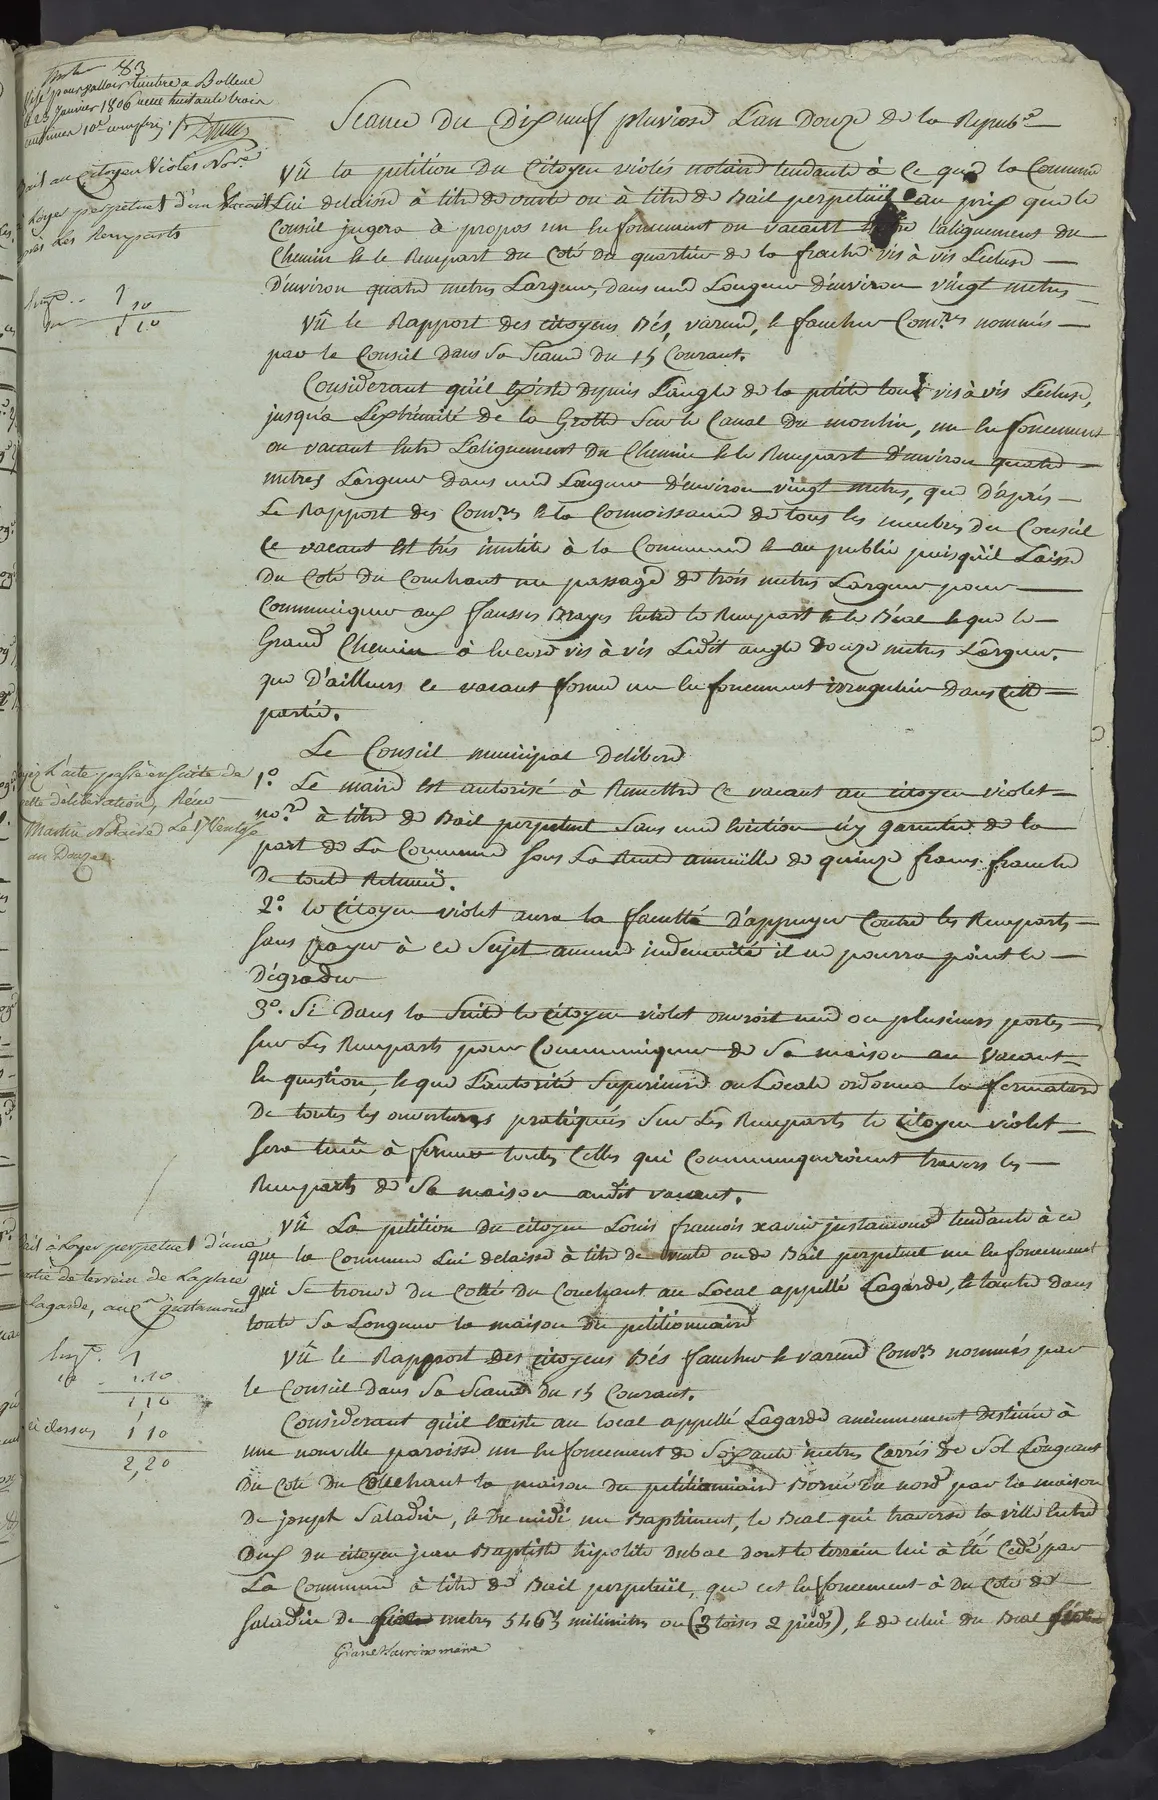 83
Visé pour valloir timbre a Bollene
le 23 Janvier 1806 reçu huitante trois
centimes 10e compris
Bail au Citoyen Violès Nore
à Loyer perpetuel d'un Vacant
près les Remparts
Enreg.t .. 1
10
1 10
Seance du Dix neuf pluviose L'an Douze de la Repub.e
Vû la petition du Citoyen violés notaire tendante à ce que la Commune
Lui delaisse à titre de vente ou à titre de Bail perpetuel au prix que le
Conseil jugera à propos un enfoncement ou vacant entre l'alignement du
Chemin & le Rempart du Coté du quartier de la frache vis à vis L'ecluse
D'environ quatre metres Largeur, dans une Longueur d'environ vingt metres
Vû le Rapport des citoyens Bés, varene, & faucher Com.res nommés
par le Conseil dans sa Seance du 15 Courant.
Considerant qu'il existe depuis L'angle de la petite tour vis à vis L'ecluse,
jusqu'a L'extrémité de la Grotte sur le Canal du moulin, un enfoncement
ou vacant entre L'alignement du Chemin & le Rempart d'environ quatre
metres Largeur dans une Longueur d'environ vingt metres, que d'après
Le Rapport des Com.res & la Connoissance de tous les membres du Conseil
Ce vacant est très inutile à la Commune & au public puisqu'il Laisse
du Coté du Couchant un passage de trois metres Largeur pour
Communiquer aux fausses Brayes entre le Rempart & le Béal & que le
Grand Chemin à encore vis à vis Ledit angle douze metres Largeur.
que d'ailleurs ce vacant forme un enfoncement irregulier dans cette
partie.
Le Conseil municipal delibere
1.o Le maire est autorisé à Remettre ce vacant au citoyen violet
no.re à titre de Bail perpetuel sans une eviction n'y garantie de la
part de La Commune sous La Rente annuelle de quinze francs franche
de toute Retenue.
voyez L'acte passé ensuite de
cette déliberation, Reçu
Martin Notaire Le 17 Ventose
an Douze
2.o le Citoyen violet aura la faculté d'appuyer Contre les Remparts
sans payer à ce Sujet aucune indemnité il ne pourra point le
Dégrader
3.o Si dans la Suite le Citoyen violet ouvroit une ou plusieurs portes
sur Les Remparts pour Communiquer de Sa maison au vacant
En question, & que L'autorité Superieure ou Locale ordonna la fermeture
de toutes les ouvertures pratiquées sur Les Remparts le Citoyen violet
sera tenu à fermer toutes Celles qui Communiqueroient travers les
Remparts de Sa maison audit vacant.
Bail à Loyer perpetuel d'une
partie de terrein de La place
Lagarde, au C.en justamond
Enreg.t. 1
1.10
1,10
ci dessus 1 10
2,20
Vû La petition du citoyen Louis françois xavier justamond tendante à ce
que la Commune Lui delaisse à titre de vente ou de Bail perpetuel un enfoncement
qui se trouve du Cotté du Couchant au Local appellé Lagarde, & lautre dans
toute Sa Longueur la maison du petitionnaire
Vû le Rapport des Citoyens Bés faucher & varene Com.res nommés par
le Conseil dans Sa Seance du 15 Courant.
Considerant qu'il existe au local appellé Lagarde anciennement destinée à
une nouvelle paroisse un enfoncement de Soixante metres Carrés de Sol Longeant
du Coté du Couchant la maison du petitionnaire Borné du nord par la maison
de joseph Saladin, & du midi un Baptiment, le Béal qui traverse la ville entre
Deux du citoyen jean Baptiste hipolite dubac dont le terrein lui à été Cedé par
La Commune à titre de Bail perpetuel, que cet enfoncement à du Coté de
Saladin de metres 5463 milimetres ou (3 toises 2 pieds), & de celui du Beal
maire